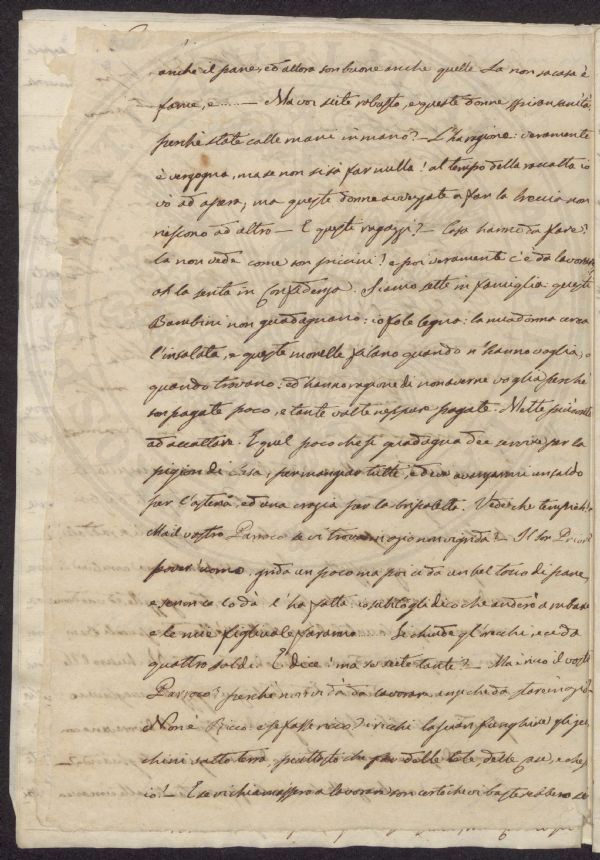 anche il pane, ed allora son buone anche quelle La non sa cosa è
fame, e ...... — Ma voi siete robusto, e queste donne spirano sanità,
perchè state colle mani in mano? — L'ha ragione: veramente
è vergogna, ma se non si sa far nulla! al tempo della raccolta io
vò ad opera, ma queste donne avvezzate a far la treccia non
riescono ad altro — E questi ragazzi? — Cosa hanno da fare?
la non vede come son piccini! e poi veramente c'è da lavorare
oh la senta in confidenza. Siamo sette in famiglia: questi
Bambini non guadagnano: io fo le legna: la mia donna cerca
l'insalata, e queste monelle filano quando n'hanno voglia, o
quando trovano: ed hanno ragione di non averne voglia perchè
son pagate poco, e tante volte neppur pagate. Mette più conto
ad accattare. E quel poco che si guadagna dee servire per la
pigion di Casa, per mangiar tutti, e deve avanzarmi un soldo
per l'osteria, ed una crazia per la
Ma il vostro Parroco se vi trova in ozio non vi grida? — Il Sor Priore
pover'uomo, grida un poco ma poi ci dà un bel tozzo di pane,
e se non ce lo dà l'ha fatta, io subito gli dico che anderò a rubare
e le mie figliuole faranno Si chiude gl'orecchi, e ce dà
quattro soldi. E dice: ma se siete tante? — Ma è ricco il vostro
Parroco? perchè non vi dà da lavorare
Non è Ricco e se fosse ricco? i ricchi lascian funghire gli zec-
chini sotto terra, piuttosto che far delle delle case, e che
io! — E se vi chiamassero a lavorare son certo che vi